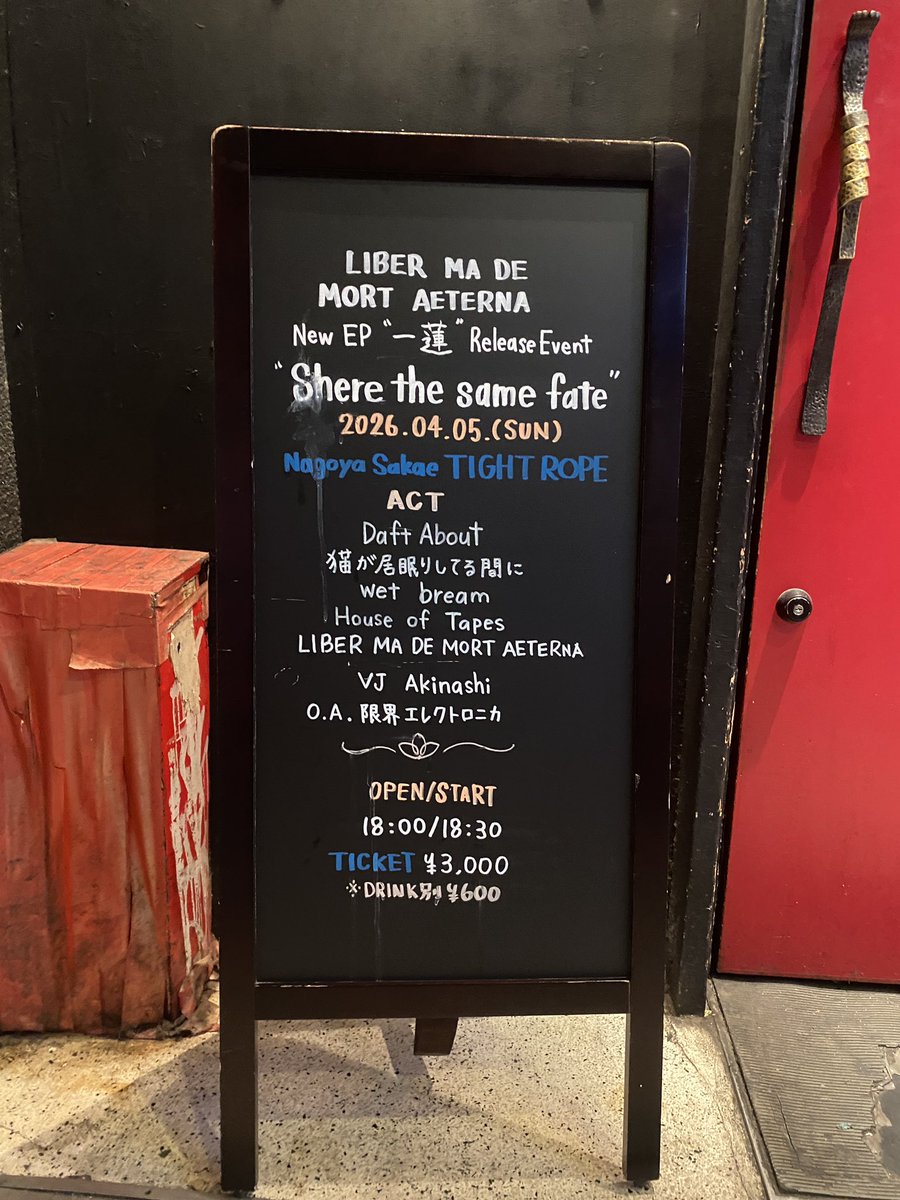 LIBER MA DE
MORT AETERNA
New EP "一蓮" Release Event
"Shere the same fate"
2026.04.05.(SUN)
Nagoya Sakae TIGHT ROPE
ACT
Daft About
猫が居眠りしてる間に
wet bream
House of Tapes
LIBER MA DE MORT AETERNA
VJ Akinashi
O.A. 限界エレクトロニカ
OPEN/START
18:00/18:30
TICKET ¥3,000
※DRINK別¥600